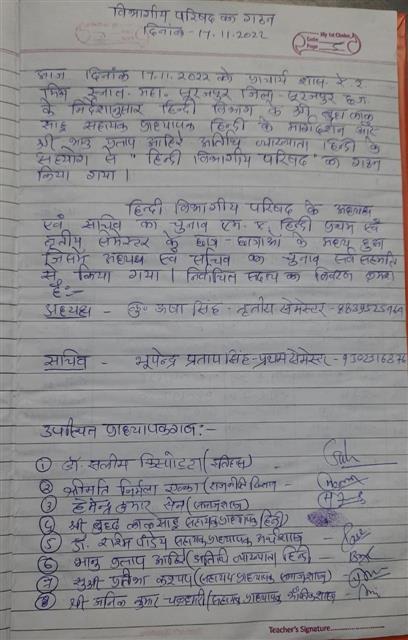 विभागीय परिषद का गठन
दिनांक - 17.11.2022
My 1st Choice
Date
Page 5
आज दिनांक 17.11.2022 को प्राचार्य शास. रे. र.
मिश्र स्नात. महा. सूरजपुर जिला - सूरजपुर छ.ग.
के निर्देशानुसार हिन्दी विभाग के श्री बृहद लाल
साहू सहायक प्राध्यापक हिन्दी के मार्गदर्शन और
श्री भानु प्रताप आहिरे अतिथि व्याख्याता हिन्दी के
सहयोग से " हिन्दी विभागीय परिषद" का गठन
किया गया ।
हिन्दी विभागीय परिषद के अध्यक्ष
एवं सचिव का चुनाव एम. ए. हिन्दी प्रथम एवं
तृतीय सेमेस्टर के छात्र - छात्राओं के मध्य हुआ
जिसमें अध्यक्ष एवं सचिव का चुनाव सर्व सहमति
से किया गया । निर्वाचित सदस्य का विवरण क्रमशः
है:-
अध्यक्ष - कु. ऊषा सिंह - तृतीय सेमेस्टर -
सचिव - भूपेन्द्र प्रताप सिंह - प्रथम सेमेस्टर - 9302316876
उपस्थित प्राध्यापकगण:-
① डॉ. सलीम किस्पोट्टा (इतिहास)
② श्रीमति निर्मला एक्का (राजनीति विज्ञान)
③ हेमेन्द्र कुमार सेन (समाजशास्त्र)
④ श्री बृहद लाल साहू (सहायक प्राध्यापक हिन्दी)
⑤ डॉ. रश्मि पाण्डेय सहायक प्राध्यापक अर्थशास्त्र
⑥ भानु प्रताप आहिरे (अतिथि व्याख्याता हिन्दी)
⑦ सुश्री प्रतिभा कश्यप (सहायक प्राध्यापक समाजशास्त्र)
⑧ श्री अनिल कुमार चक्रधारी (सहायक प्राध्यापक भौतिकशास्त्र)
Teacher's Signature